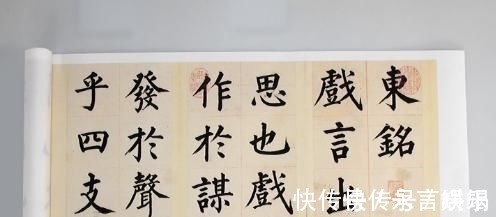 東銘
戲言出
思也戲
作於謀
發於聲
乎四支
快传号